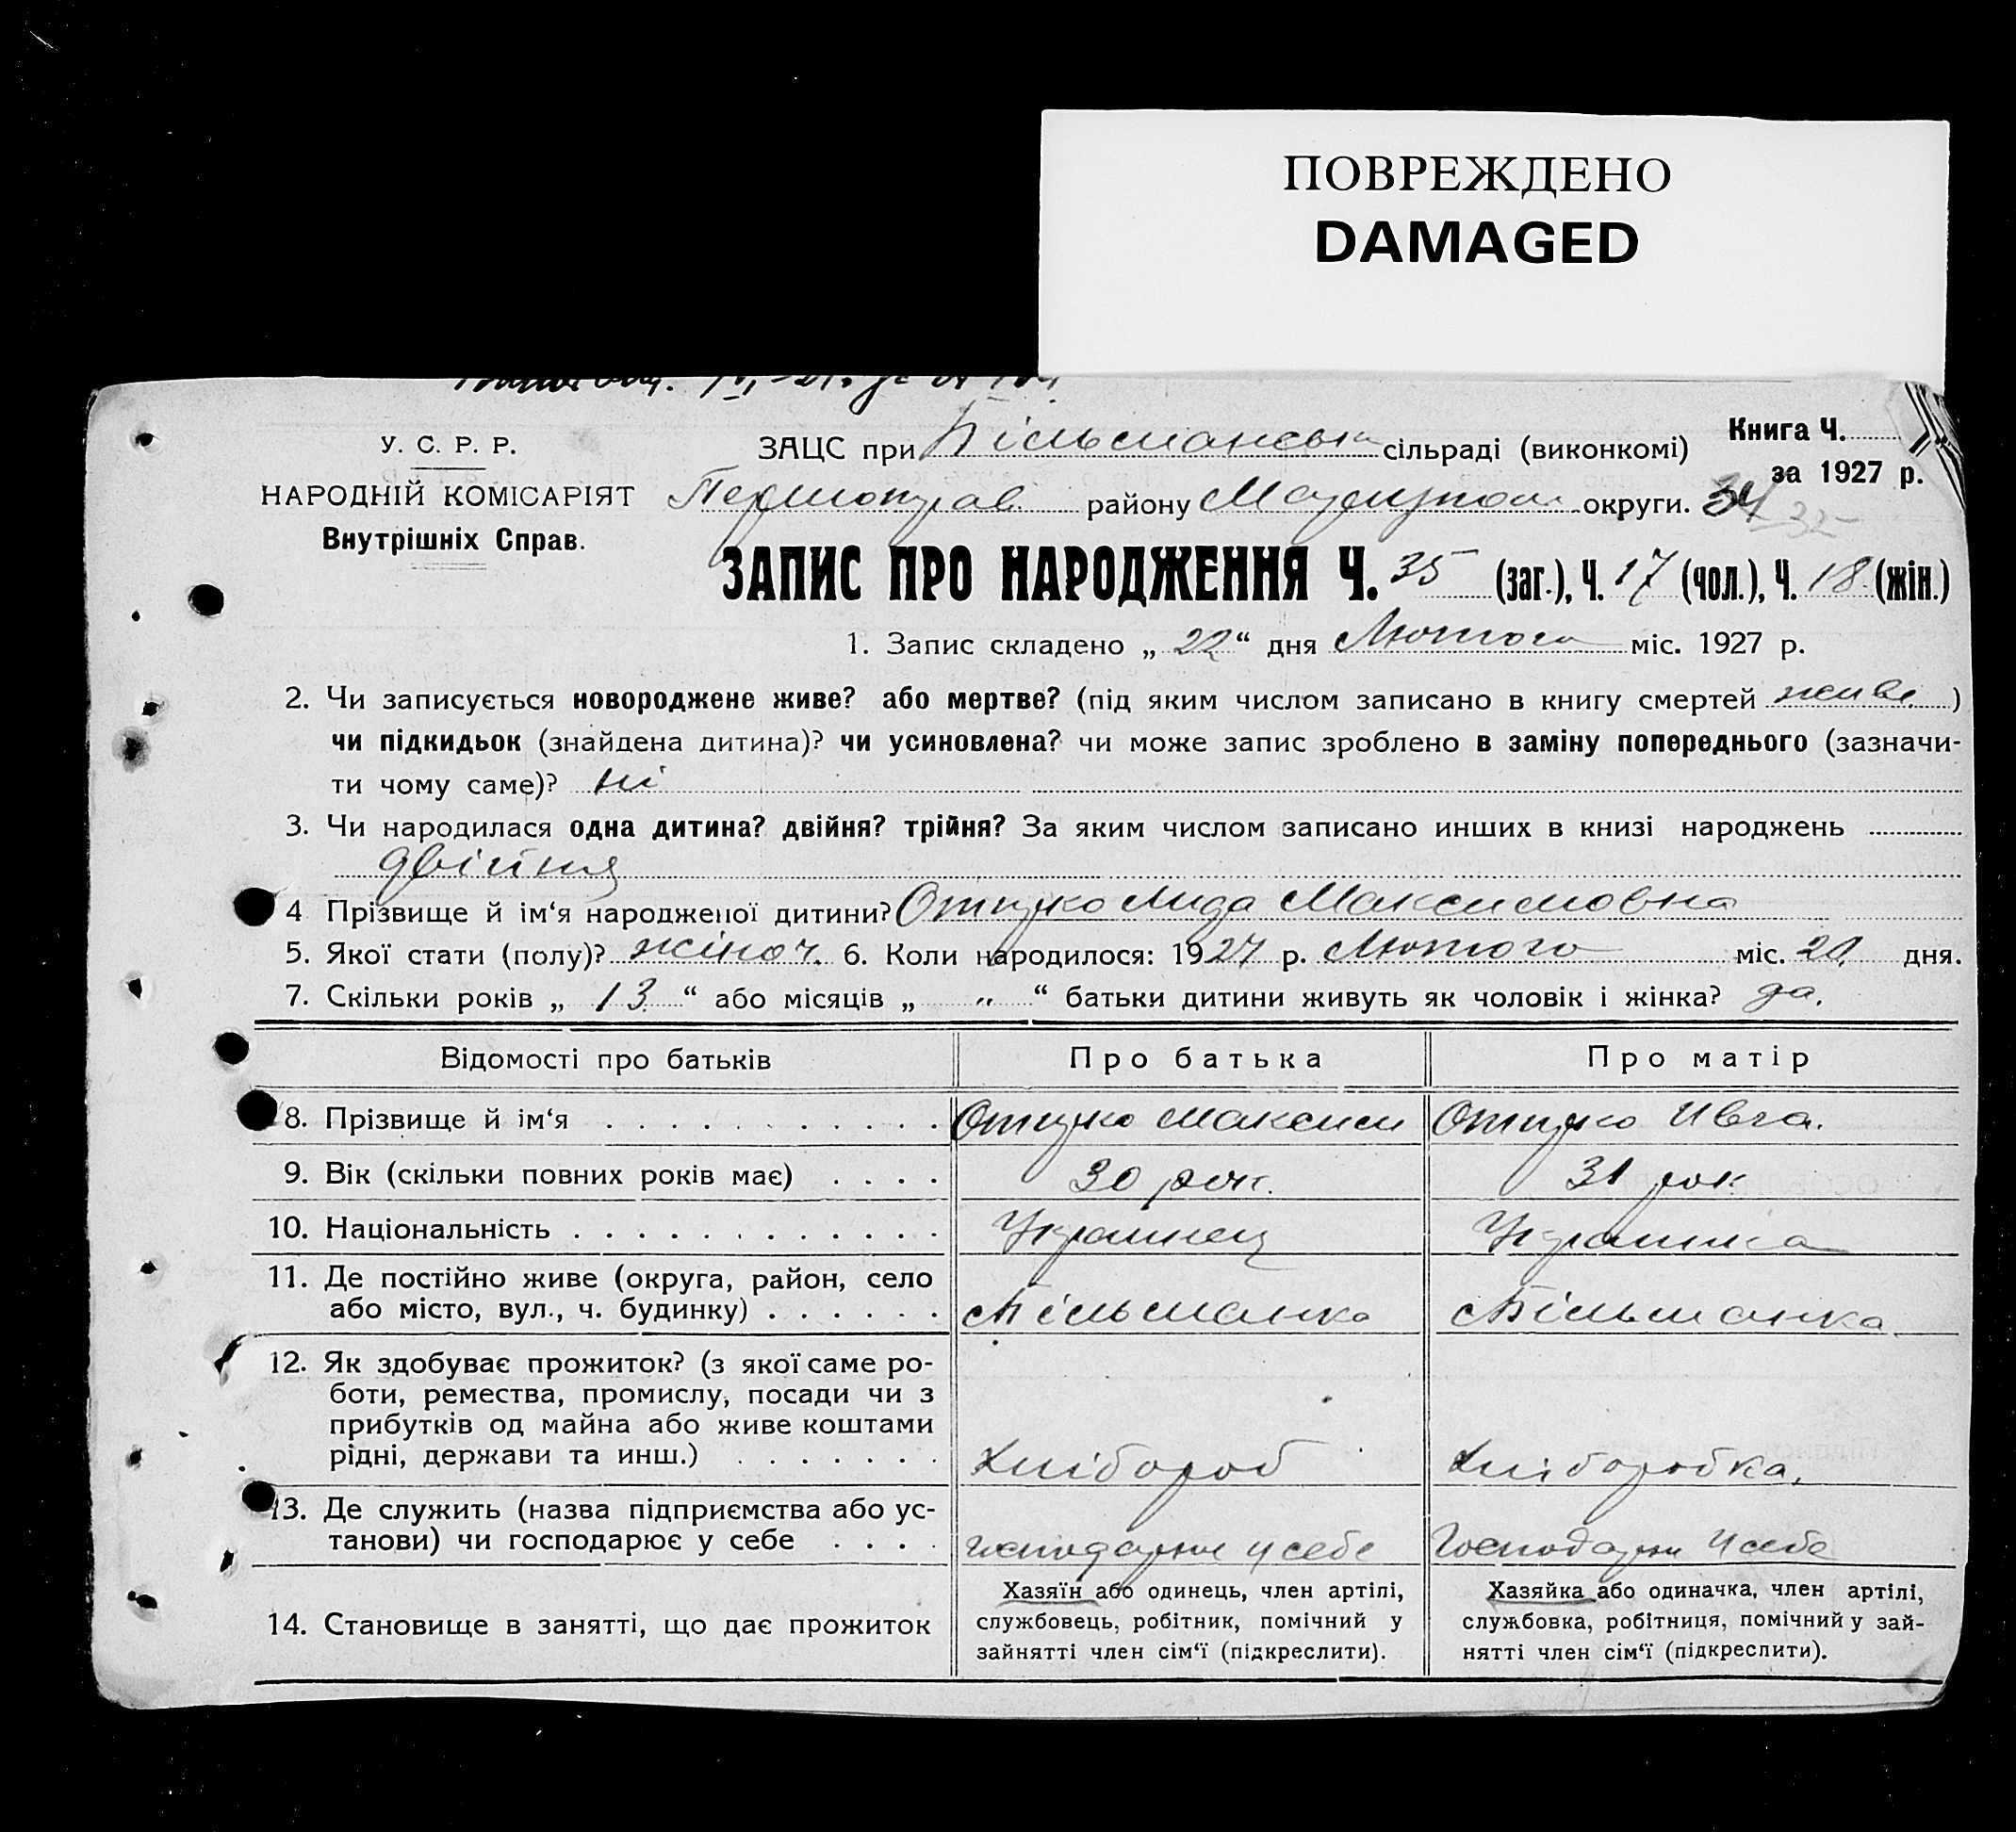 ПОВРЕЖДЕНО
DAMAGED
У. С. Р. Р.
НАРОДНІЙ КОМІСАРІЯТ
Внутрішніх Справ.
ЗАЦС при Більманськ сільраді (виконкомі)
Книга Ч.
за 1927 р.
району Мариупол округи. 34 35
ЗАПИС ПРО НАРОДЖЕННЯ Ч. 35 (заг.), Ч. 17 (чол.), Ч. 18 (жін.)
1. Запис складено „ 22 “ дня Лютого міс. 1927 р.
2. Чи записується новороджене живе? або мертве? (під яким числом записано в книгу смертей живе )
чи підкидьок (знайдена дитина)? чи усиновлена? чи може запис зроблено в заміну попереднього (зазначи-
ти чому саме)? ні
3. Чи народилася одна дитина? двійня? трійня? За яким числом записано инших в книзі народжень
двійня
4 Прізвище й ім‘я народженої дитини? Отцуко Лида Максимовна
5. Якої стати (полу)? жіноч. 6. Коли народилося: 1927 р. Лютого міс. 20 дня.
7. Скільки років „ 13 “ або місяців „ " “ батьки дитини живуть як чоловік і жінка? да.
Відомості про батьків
Про батька
Про матір
8. Прізвище й ім‘я
Отцуко Максим
Отцуко Ивга.
9. Вік (скільки повних років має)
30 рок.
31 рок
10. Національність
Украинец
Украинка
11. Де постійно живе (округа, район, село
або місто, вул., ч. будинку)
Більманка
Більманка
12. Як здобуває прожиток? (з якої саме ро-
боти, ремества, промислу, посади чи з
прибутків од майна або живе коштами
рідні, держави та инш.)
Хлібороб
Хліборобка,
13. Де служить (назва підприємства або ус-
танови) чи господарює у себе
господарює у себе
Господарює у себе
14. Становище в занятті, що дає прожиток
Хазяїн або одинець, член артілі,
службовець, робітник, помічний у
зайнятті член сім‘ї (підкреслити).
Хазяйка або одиначка, член артілі,
службовка, робітниця, помічний у зай-
нятті член сім‘ї (підкреслити).